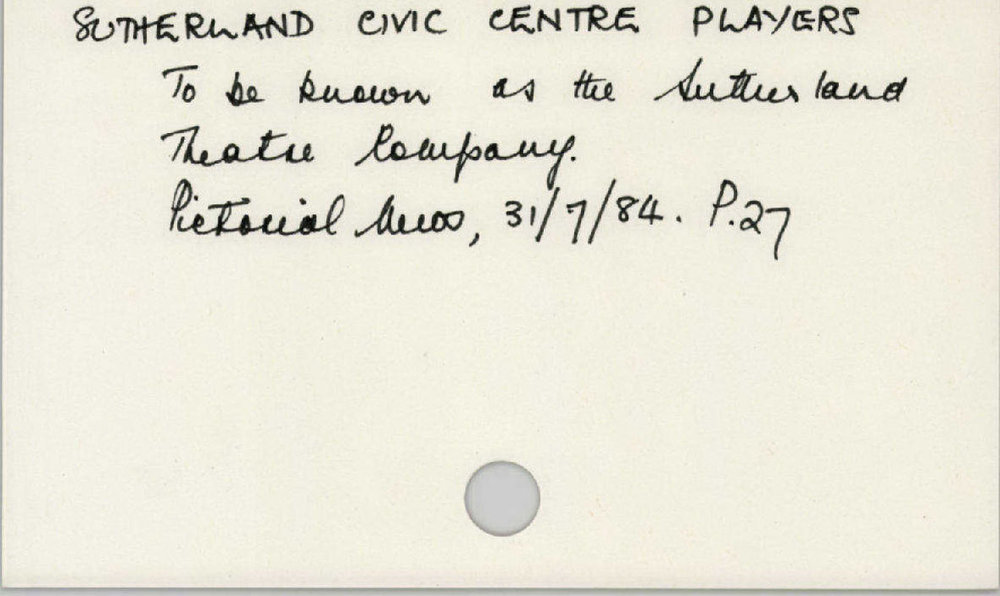 SUTHERLAND CIVIC CENTRE PLAYERS
To be known as the Sutherland
Theatre Company.
Pictorial News, 31/7/84. P.27